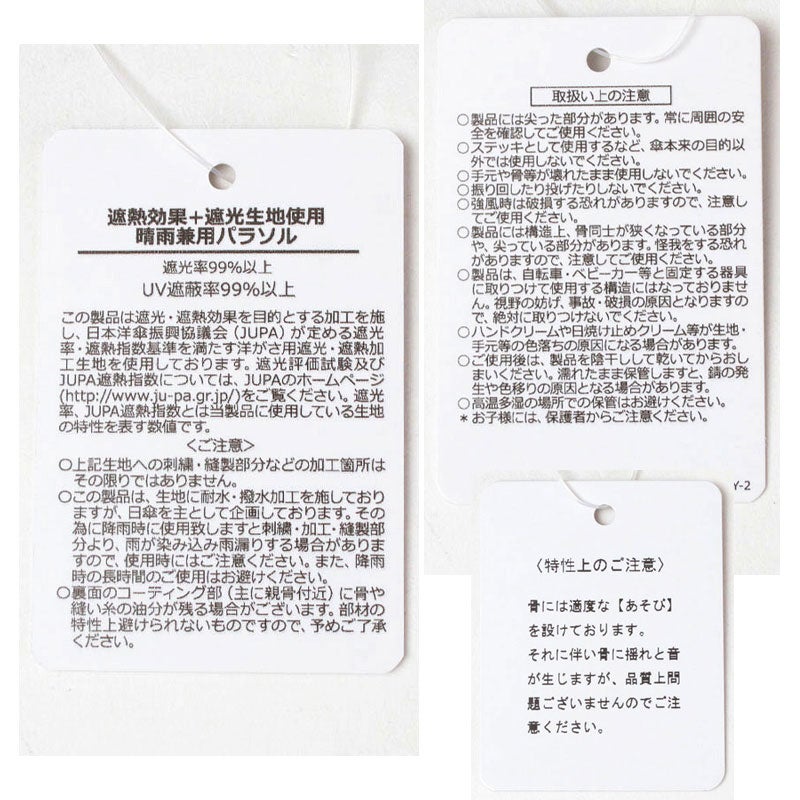 遮熱効果＋遮光生地使用
晴雨兼用パラソル
遮光率99％以上
UV遮蔽率99％以上
この製品は遮光・遮熱効果を目的とする加工を施
し、日本洋傘振興協議会（JUPA）が定める遮光
率・遮熱指数基準を満たす洋がさ用遮光・遮熱加
工生地を使用しております。遮光評価試験及び
JUPA遮熱指数については、JUPAのホームページ
(http://www.ju-pa.gr.jp/)をご覧ください。遮光
率、JUPA遮熱指数とは当製品に使用している生地
の特性を表す数値です。
＜ご注意＞
○上記生地への刺繍・縫製部分などの加工箇所は
その限りではありません。
○この製品は、生地に耐水・撥水加工を施しており
ますが、日傘を主として企画しております。その
為に降雨時に使用致しますと刺繍・加工・縫製部
分より、雨が染み込み雨漏りする場合がありま
すので、使用時にはご注意ください。また、降雨
時の長時間のご使用はお避けください。
○裏面のコーティング部（主に親骨付近）に骨や
縫い糸の油分が残る場合がございます。部材の
特性上避けられないものですので、予めご了承
ください。
取扱い上の注意
○製品には尖った部分があります。常に周囲の安
全を確認してご使用ください。
○ステッキとして使用するなど、傘本来の目的以
外では使用しないでください。
○手元や骨等が壊れたまま使用しないでください。
○振り回したり投げたりしないでください。
○強風時は破損する恐れがありますので、注意し
てご使用ください。
○製品には構造上、骨同士が狭くなっている部分
や、尖っている部分があります。怪我をする恐れ
がありますので、注意してご使用ください。
○製品は、自転車・ベビーカー等と固定する器具
に取りつけて使用する構造にはなっておりませ
ん。視野の妨げ、事故・破損の原因となりますの
で、絶対に取りつけないでください。
○ハンドクリームや日焼け止めクリーム等が生地・
手元等の色落ちの原因になる場合があります。
○ご使用後は、製品を陰干しして乾いてからおし
まいください。濡れたまま保管しますと、錆の発
生や色移りの原因となる場合があります。
○高温多湿の場所での保管はお避けください。
＊お子様には、保護者からご注意ください。
Y-2
〈特性上のご注意〉
骨には適度な【あそび】
を設けております。
それに伴い骨に揺れと音
が生じますが、品質上問
題ございませんのでご注
意ください。